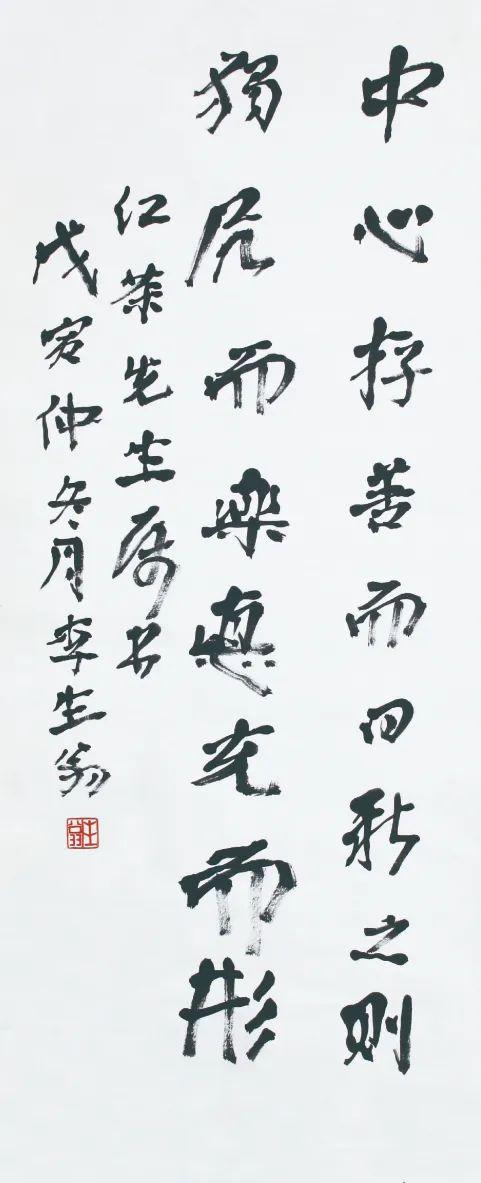 中心存善而日新之则
獨凥而樂悳充而形
红先生属书
戊寅仲冬月李生翁
生翁